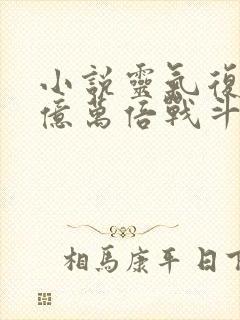 小說靈氣復
億萬倍戰斗
相馬康平 日下